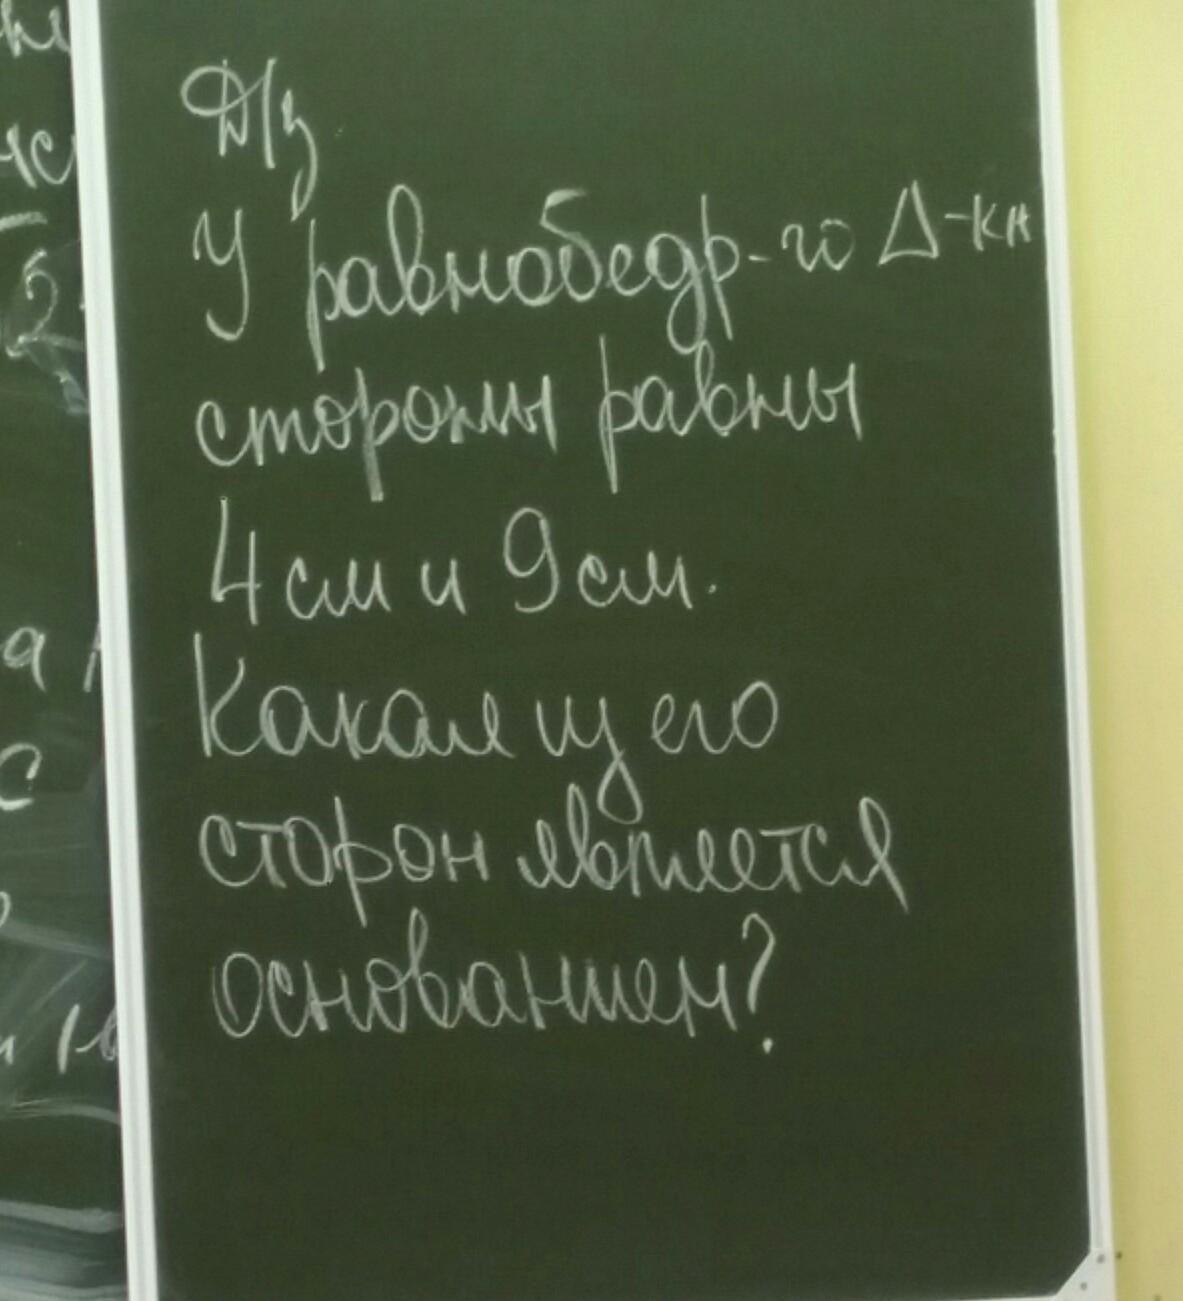 Д/з
У равнобедр-го Δ-ка
стороны равны
4 см и 9 см.
Какая из его
сторон является
основанием?